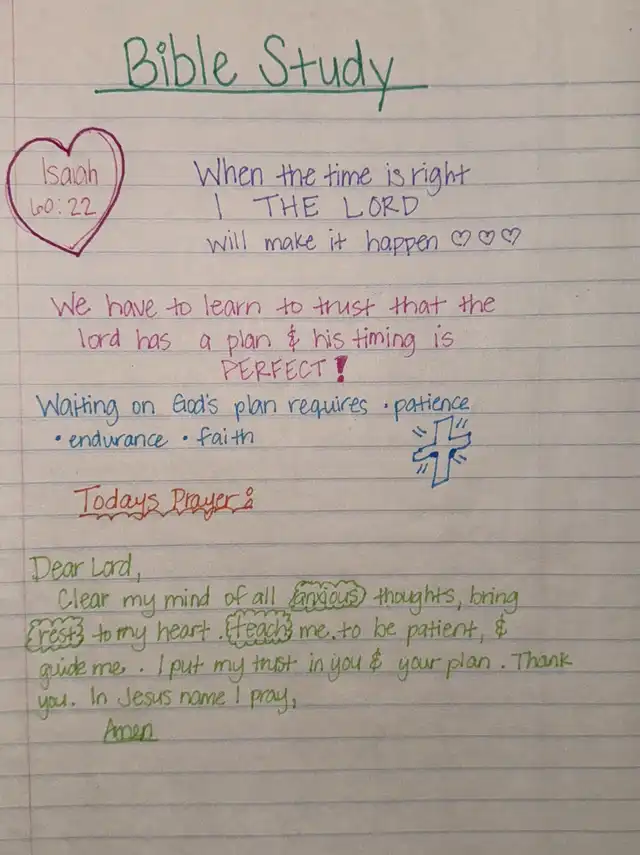 Bible Study
Isaiah
60:22
When the time is right
I THE LORD
will make it happen ♡♡♡
We have to learn to trust that the
lord has a plan & his timing is
PERFECT!
Waiting on God's plan requires • patience
• endurance • faith
Todays Prayer:
Dear Lord,
Clear my mind of all anxious thoughts, bring
rest to my heart. teach me to be patient, &
guide me. I put my trust in you & your plan. Thank
you. In Jesus name I pray,
Amen